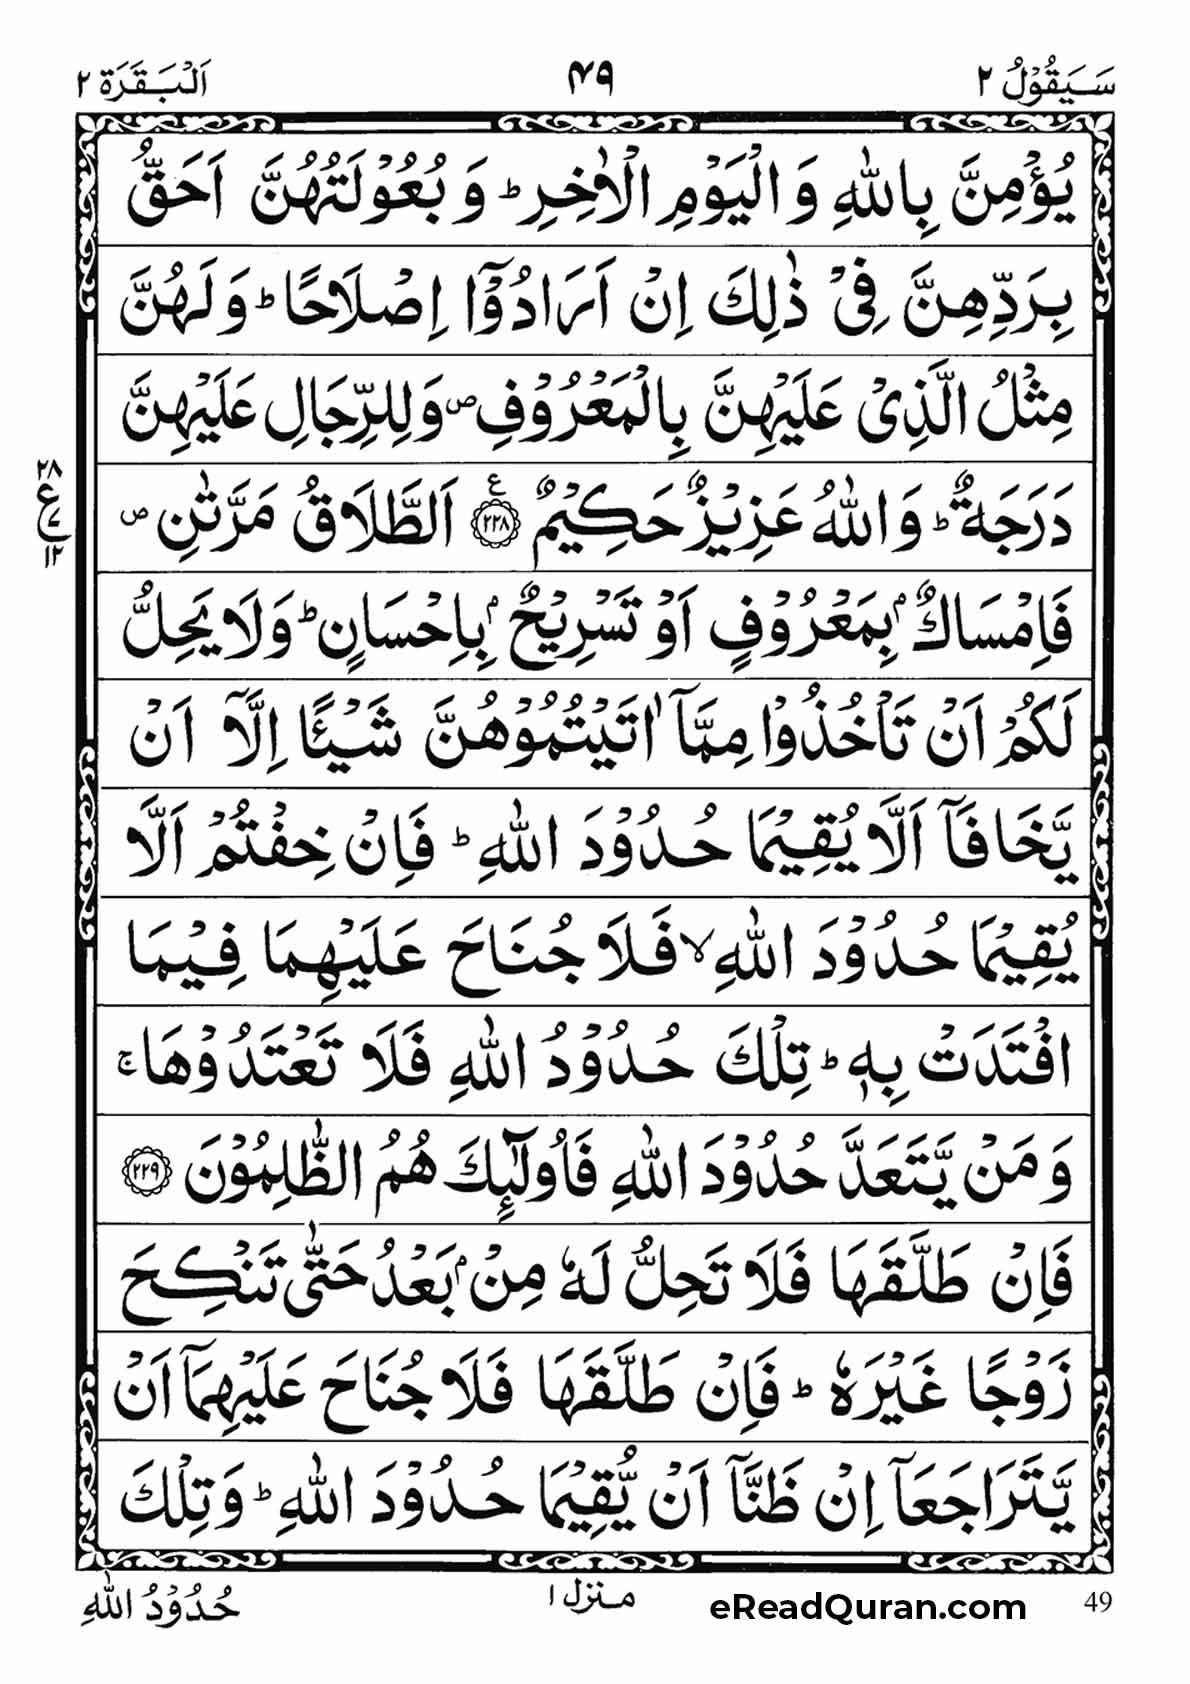 سَيَقُوْلُ ٢
۴۹
اَلْبَقَرَة ٢
يُؤْمِنَّ بِاللّٰهِ وَ الْيَوْمِ الْاٰخِرِ ؕ وَ بُعُوْلَتُهُنَّ اَحَقُّ
بِرَدِّهِنَّ فِيْ ذٰلِكَ اِنْ اَرَادُوْٓا اِصْلَاحًا ؕ وَ لَهُنَّ
مِثْلُ الَّذِيْ عَلَيْهِنَّ بِالْمَعْرُوْفِ ۪ وَ لِلرِّجَالِ عَلَيْهِنَّ
دَرَجَةٌ ؕ وَ اللّٰهُ عَزِيْزٌ حَكِيْمٌ ﴿٢٢٨﴾ ع اَلطَّلَاقُ مَرَّتٰنِ ۪
فَاِمْسَاكٌۢ بِمَعْرُوْفٍ اَوْ تَسْرِيْحٌۢ بِاِحْسَانٍ ؕ وَ لَا يَحِلُّ
لَكُمْ اَنْ تَاْخُذُوْا مِمَّاۤ اٰتَيْتُمُوْهُنَّ شَيْـًٔا اِلَّاۤ اَنْ
يَّخَافَاۤ اَلَّا يُقِيْمَا حُدُوْدَ اللّٰهِ ؕ فَاِنْ خِفْتُمْ اَلَّا
يُقِيْمَا حُدُوْدَ اللّٰهِ ۙ فَلَا جُنَاحَ عَلَيْهِمَا فِيْمَا
افْتَدَتْ بِهٖ ؕ تِلْكَ حُدُوْدُ اللّٰهِ فَلَا تَعْتَدُوْهَا ۚ
وَ مَنْ يَّتَعَدَّ حُدُوْدَ اللّٰهِ فَاُولٰٓئِكَ هُمُ الظّٰلِمُوْنَ ﴿٢٢٩﴾
فَاِنْ طَلَّقَهَا فَلَا تَحِلُّ لَهٗ مِنْۢ بَعْدُ حَتّٰى تَنْكِحَ
زَوْجًا غَيْرَهٗ ؕ فَاِنْ طَلَّقَهَا فَلَا جُنَاحَ عَلَيْهِمَاۤ اَنْ
يَّتَرَاجَعَاۤ اِنْ ظَنَّاۤ اَنْ يُّقِيْمَا حُدُوْدَ اللّٰهِ ؕ وَ تِلْكَ
٢٨
ع
٧
١٢
49
eReadQuran.com
منزل ١
حُدُوْدُ اللّٰهِ